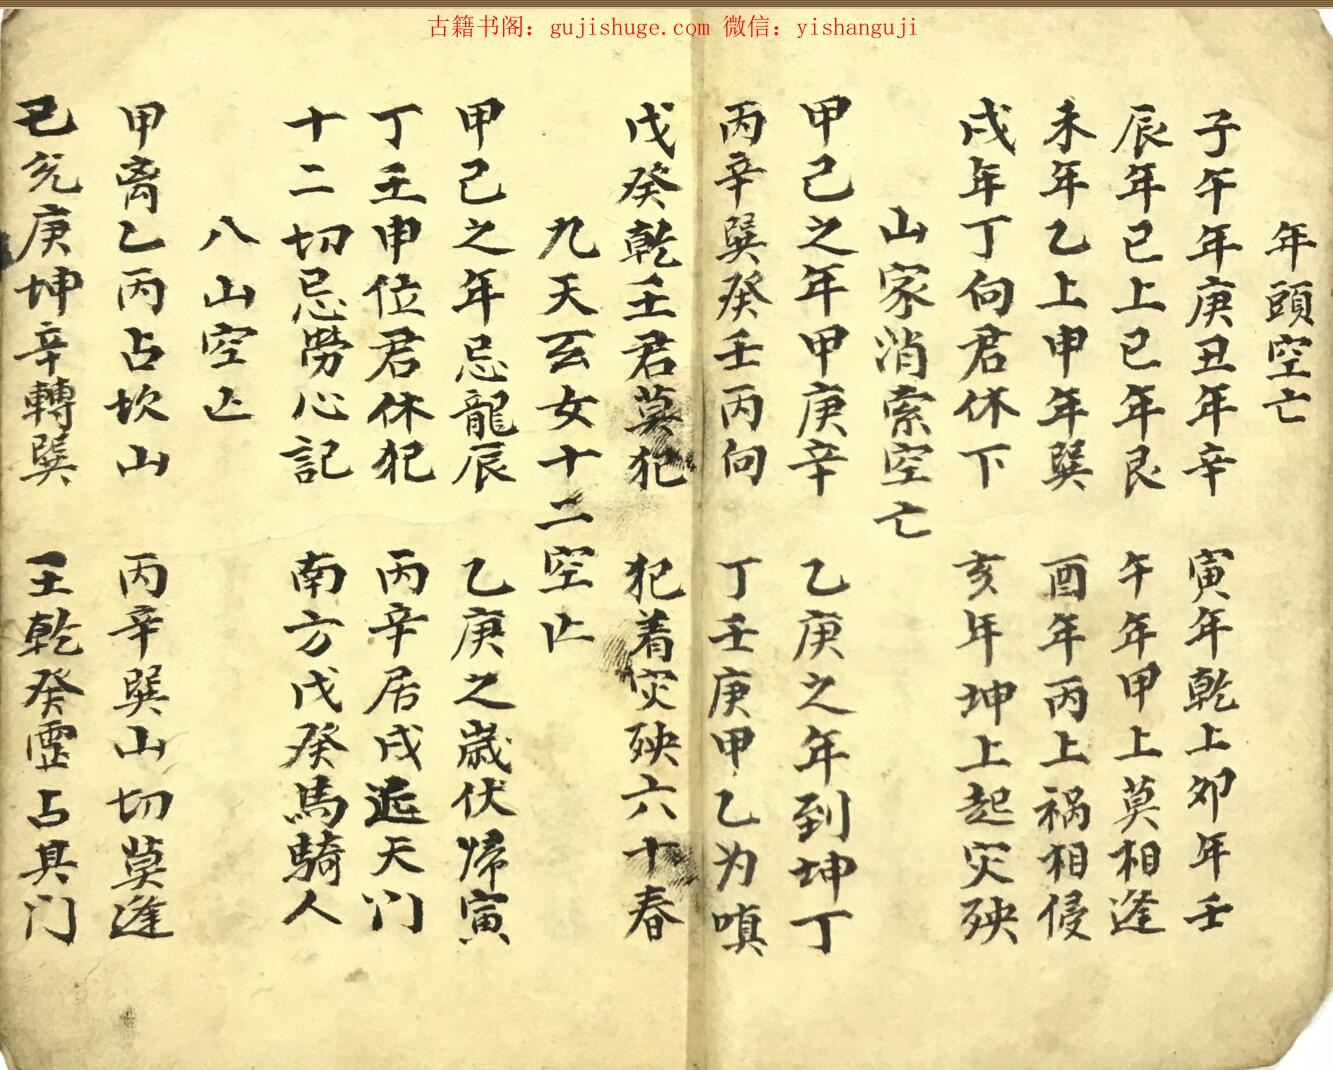 古籍书阁：gujishuge.com 微信：yishanguji
年頭空亡
子午年庚丑年辛 寅年乾上卯年壬
辰年巳上巳年艮 午年甲上莫相逢
未年乙上申年巽 酉年丙上祸相侵
戌年丁向君休下 亥年坤上起灾殃
山家消索空亡
甲己之年甲庚辛 乙庚之年到坤丁
丙辛巽癸壬丙向 丁壬庚甲乙为嗔
戊癸乾壬君莫犯 犯着灾殃六十春
九天玄女十二空亡
甲己之年忌龍辰 乙庚之歲伏歸寅
丁壬申位君休犯 丙辛居戌远天门
十二切忌勞心記 南方戊癸馬騎人
八山空亡
甲离乙丙占坎山 丙辛巽山切莫逢
己兊庚坤辛轉巽 壬乾癸灵占其门